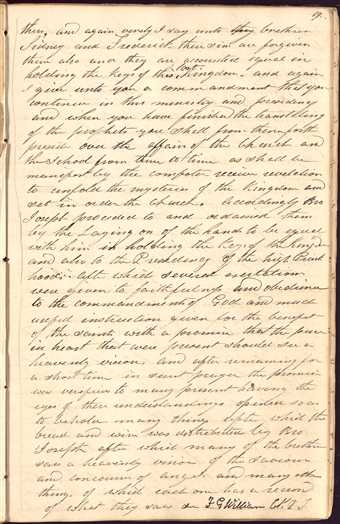 19
thee, and again verely I say unto thy brethren
Sidney and Frederick their sins are forgiven
them also and they are accounted equal in
holding the keys of this last Kingdom. and again
I give unto you a commandment that you
continue in this ministry and presidency
and when you have finished the translating
of the prophets you shall from thenceforth
preside over the affairs of the Church and
the School from time to time as shall be
manifest by the comforter receive revelation
to unfold the mysteries of the Kingdom and
set in order the Church. Accordingly Bro
Joseph proceeded to and ordained them
by the laying on of the hands to be equal
with him in holding the Keys of the Kingdom
and also to the Presidency of the high Priest
hood. After which several exortations
were given to faithfulness and obedience
to the commandments of God and much
useful instruction given for the benefit
of the saints with a promise that the pure
in heart that were present should see a
heavenly vision and after remaining for
a short time in secret prayer the promise
was verified to many present having the
eyes of their understandings opened so as
to behold many things after which the
bread and wine was distributed by Bro
Joseph after which many of the brethren
saw a heavenly vision of the saviour
and concourse of angels and many other
things of which each one has a record
of what they saw F G Williams